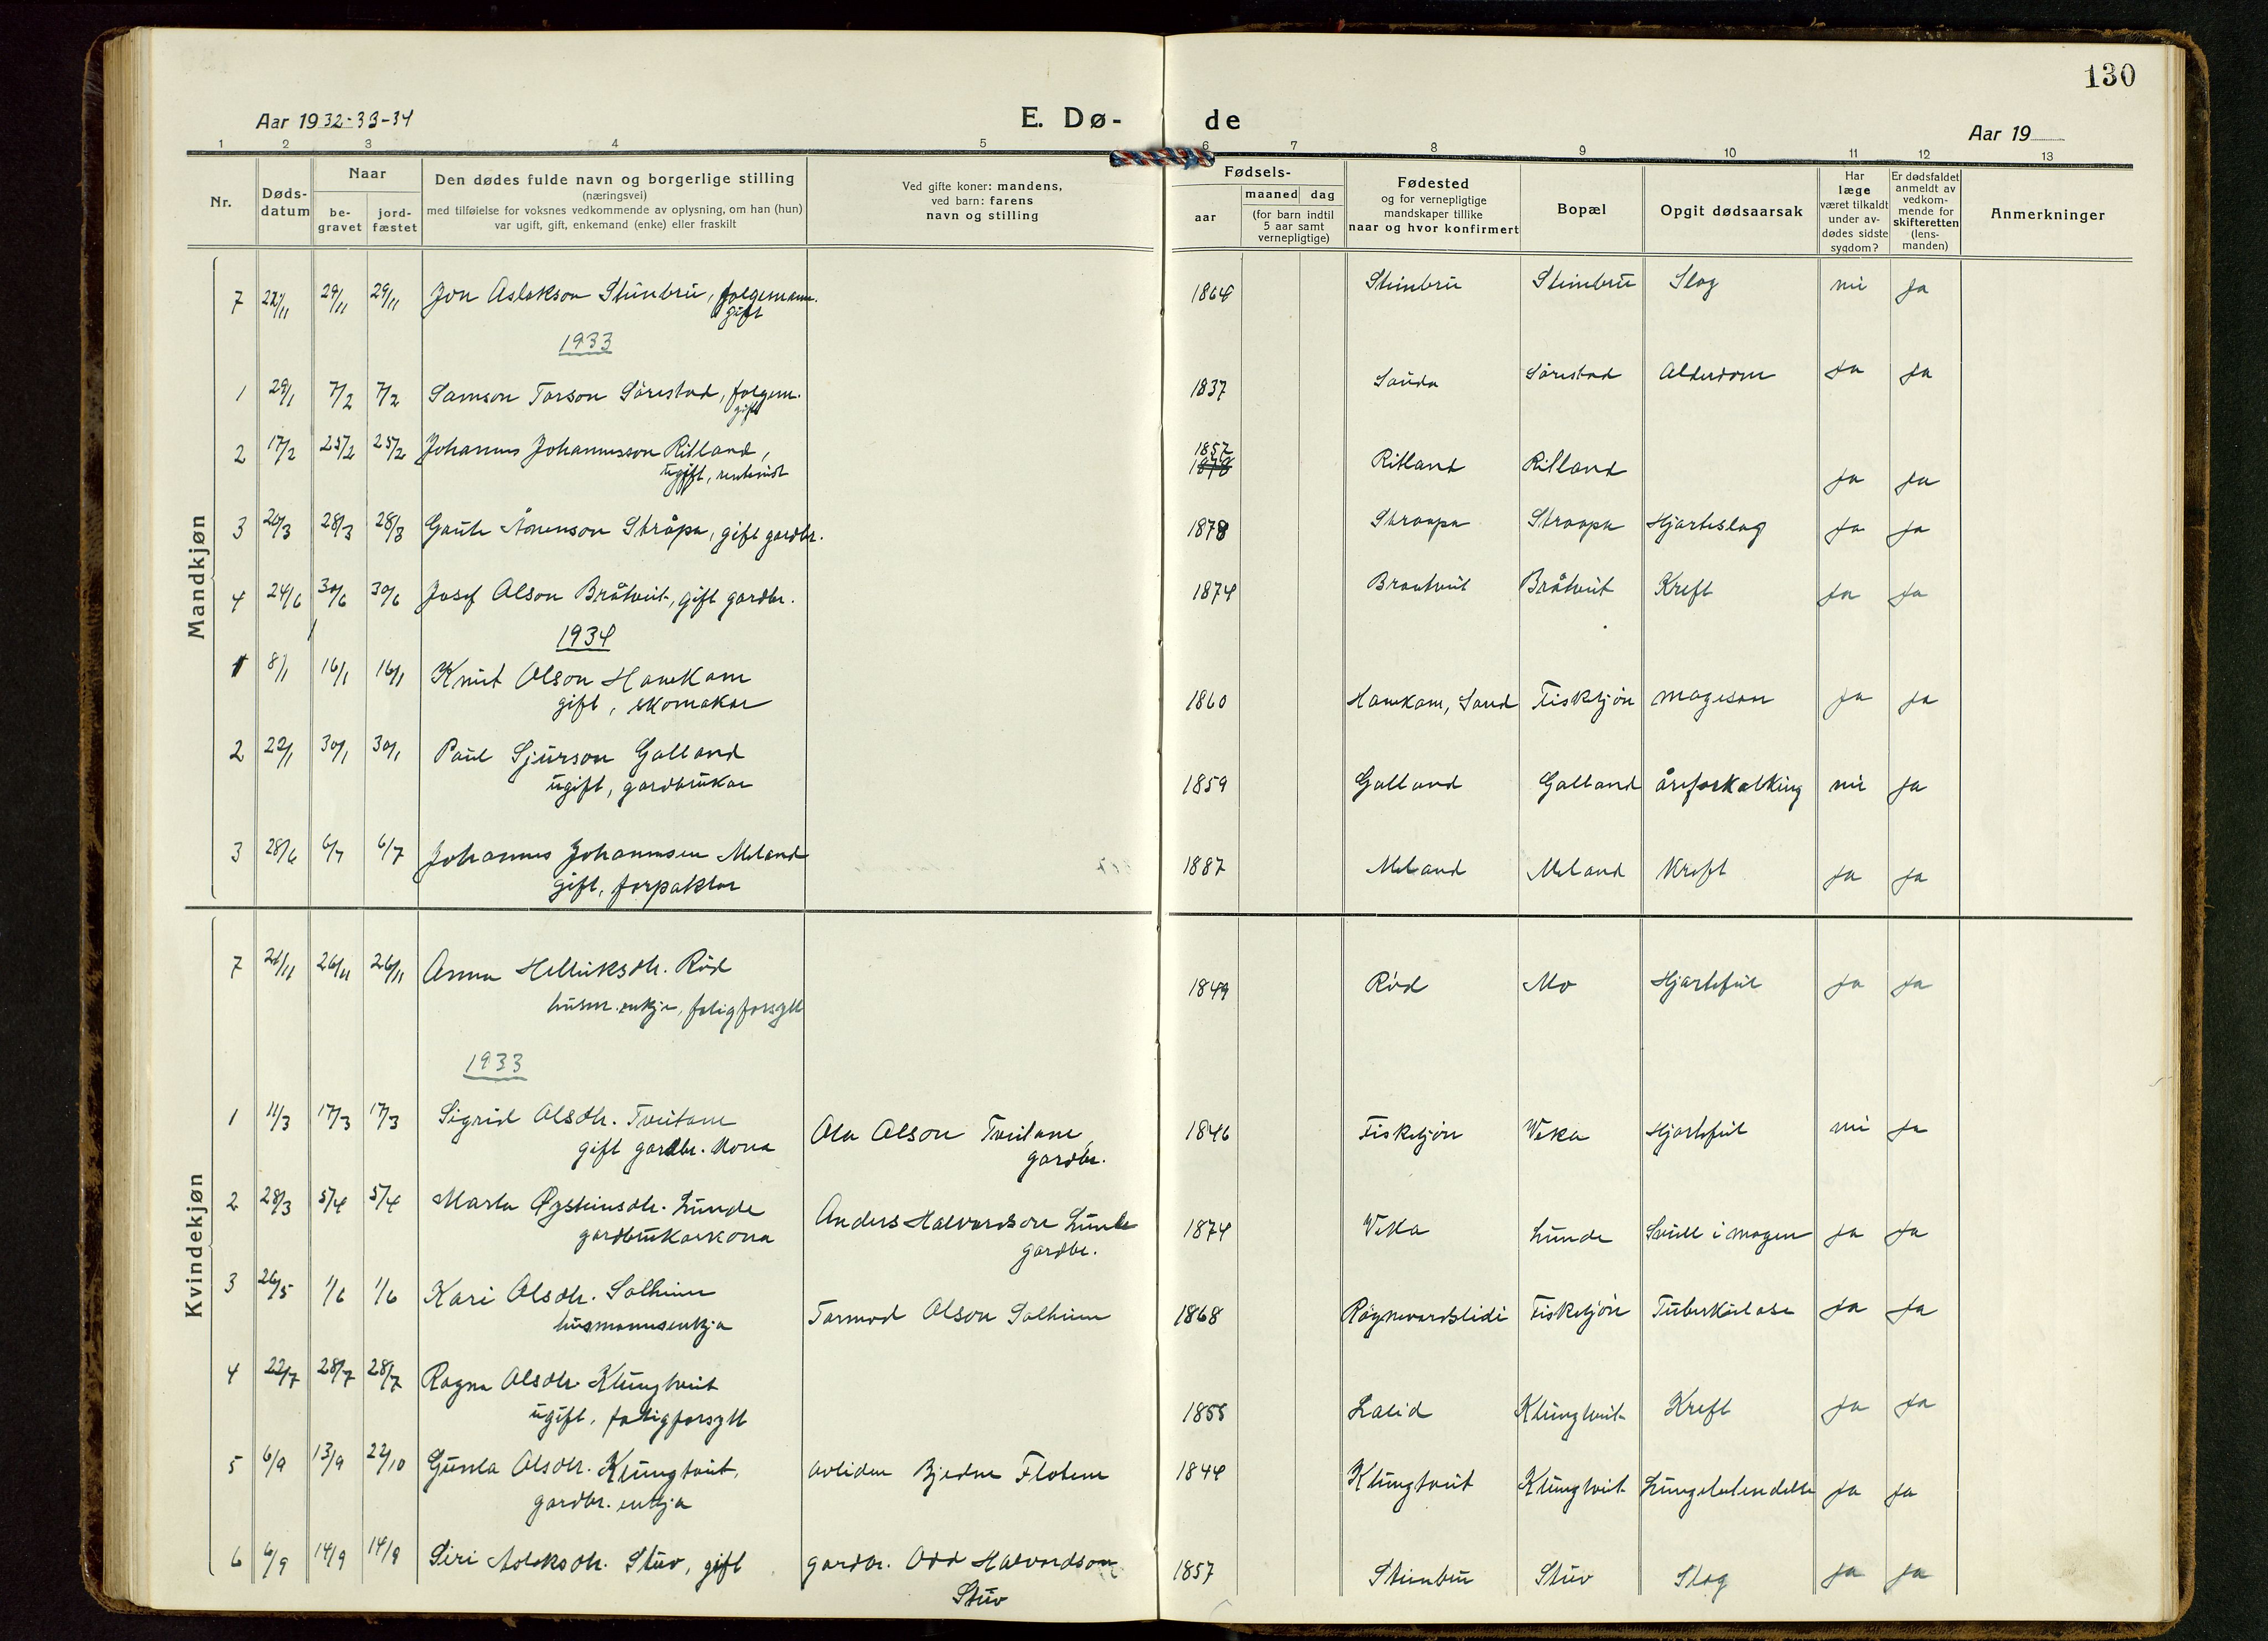 130
Aar 1932-33-34
E. Dø-
de
Aar 19
1 2 3 4 5 6 7 8 9 10 11 12 13
Nr.
Døds-
datum
Naar
be-
gravet
jord-
fæstet
Den dødes fulde navn og borgerlige stilling
(næringsvei)
med tilføielse for voksnes vedkommende av oplysning, om han (hun)
var ugift, gift, enkemand (enke) eller fraskilt
Ved gifte koner: mandens,
ved barn: farens
navn og stilling
Fødsels-
aar
maaned dag
(for barn indtil
5 aar samt
vernepligtige)
Fødested
og for vernepligtige
mandskaper tillike
naar og hvor konfirmert
Bopæl
Opgit dødsaarsak
Har
læge
været tilkaldt
under av-
dødes sidste
sygdom?
Er dødsfaldet
anmeldt av
vedkom-
mende for
skifteretten
(lens-
manden)
Anmerkninger
Mandkjøn
7 29/11 29/11 Jon Aslakson Steinbru, folgemann. 1864 Steinbru Steinbru Slag nei Ja
gift
1933
1 29/1 7/2 7/2 Samson Torson Sørestad, folgem. 1837 Sauda Sørestad Alderdom Ja Ja
gift
2 17/2 25/2 25/2 Johannes Johannesson Ritland, 1857 1878 Ritland Ritland Ja Ja
ugift, rentenist
3 20/3 28/3 28/3 Gaute Åmenson Stråpa, gift gardbr. 1878 Straapa Straapa Hjarteslag Ja Ja
4 24/6 30/6 30/6 Josef Olson Bråtveit, gift gardbr. 1874 Braatveit Bråtveit Kreft Ja Ja
1934
1 8/1 16/1 16/1 Knut Olson Hanekam 1860 Hanekam, Sand Fisketjøn magesår Ja Ja
gift, skomakar
2 22/1 30/1 30/1 Paul Sjurson Galland 1859 Galland Galland åreforkalking nei Ja
ugift, gardbrukar
3 28/6 6/7 6/7 Johannes Johannesen Meland 1887 Meland Meland Kreft Ja Ja
gift, forpaktar
Kvindekjøn
7 21/11 26/11 26/11 Anna Helleiksdtr. Rød 1849 Rød Mo Hjartefeil Ja Ja
husm. enkje, fatigforsytt
1933
1 11/3 17/3 17/3 Sigrid Olsdtr. Tveitane Ola Olson Tveitane, 1846 Fisketjøn Veka Hjartefeil nei Ja
gift gardbr. kona gardbr.
2 28/3 5/4 5/4 Marta Øysteinsdtr. Lunde Anders Halvardson Lunde 1874 Veka Lunde Svull i magen Ja Ja
gardbrukarkona gardbr.
3 26/5 1/6 1/6 Kari Olsdtr. Solheim Tormod Olson Solheim 1868 Røgnevardslidi Fisketjøn Tuberkulose Ja Ja
husmannsenkja
4 22/7 28/7 28/7 Ragna Olsdtr. Klungtveit 1855 Lalid Klungtveit Kreft Ja Ja
ugift, fatigforsytt
5 6/9 13/9 22/10 Gunla Olsdtr. Klungtveit, avliden Bjedne Flotene 1844 Klungtveit Klungtveit Lungebetendelse Ja Ja
gardbr. enkja
6 6/9 14/9 14/9 Siri Aslaksdtr. Stuv, gift gardbr. Odd Halvardson 1857 Steinbru Stuv Slag Ja Ja
Stuv